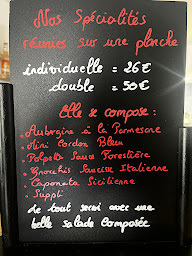 Nos Spécialités
réunies sur une planche
individuelle = 26€
double = 50€
Elle se compose :
• Aubergine à la Parmesane
• Mini Cordon Bleu
• Polpetta Sauce Forestière
• Gnocchis Saucisse Italienne
• Caponata Sicilienne
• Suppli
Le tout servi avec une
belle salade Composée